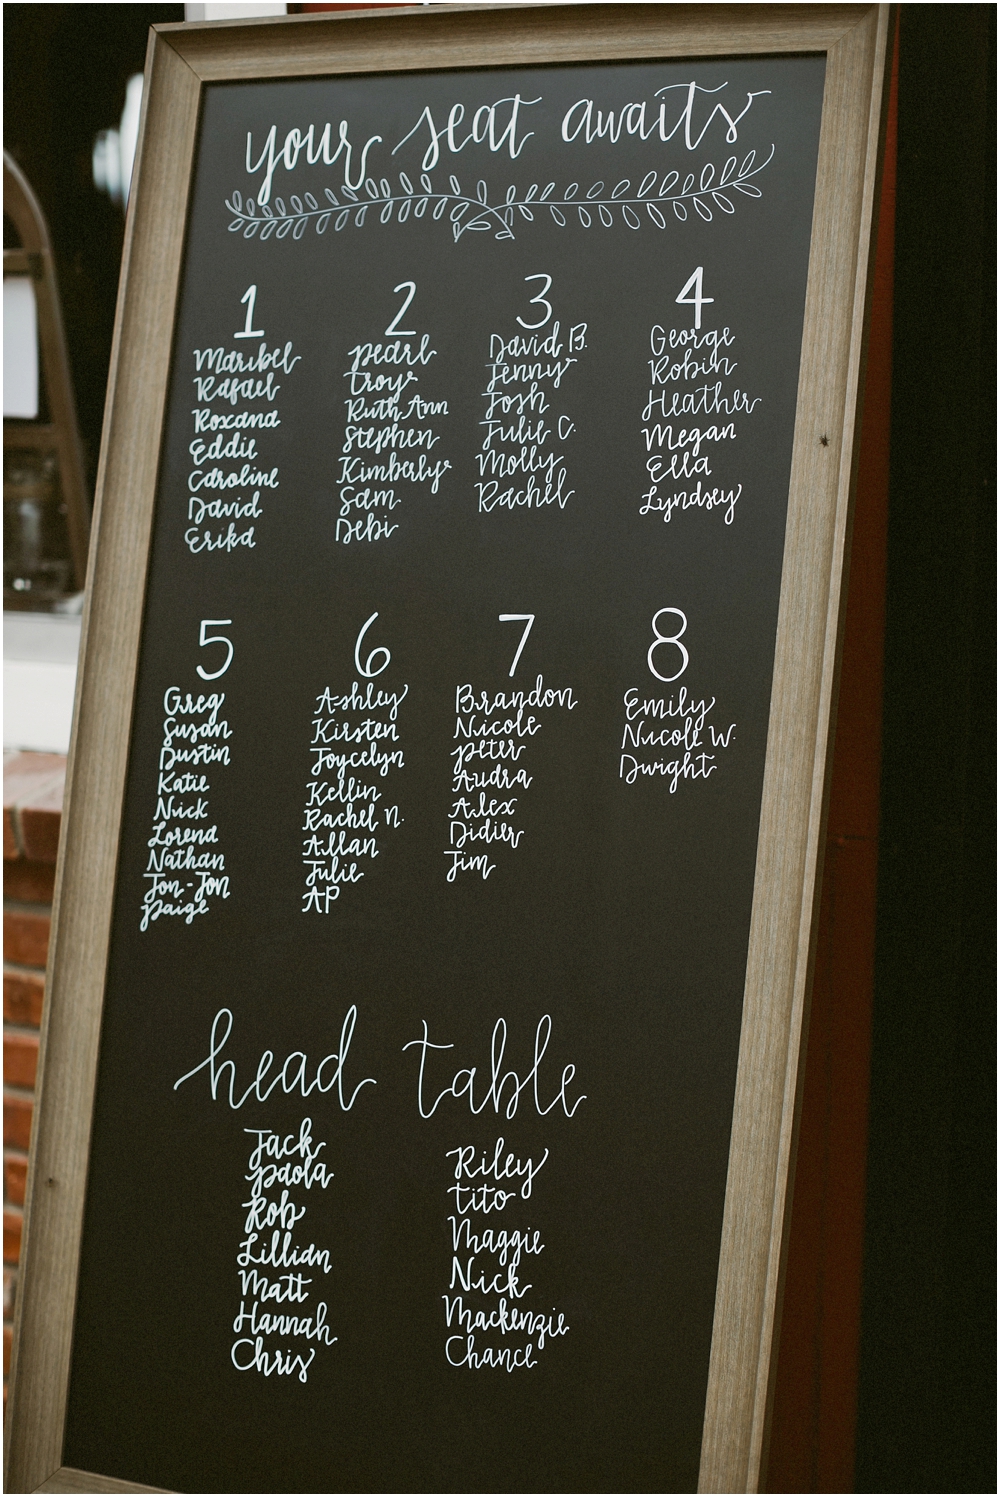 your seat awaits
1
Maribel
Rafael
Roxana
Eddie
Caroline
David
Erika
2
Pearl
Troy
Ruth Ann
Stephen
Kimberly
Sam
Debi
3
David B.
Jenny
Josh
Julie C.
Molly
Rachel
4
George
Robin
Heather
Megan
Ella
Lyndsey
5
Greg
Susan
Dustin
Katie
Nick
Lorena
Nathan
Jon-Jon
Paige
6
Ashley
Kirsten
Joycelyn
Kellin
Rachel N.
Allan
Julie
AP
7
Brandon
Nicole
Peter
Audra
Alex
Didier
Jim
8
Emily
Nicole W.
Dwight
head table
Jack
Paola
Rob
Lillian
Matt
Hannah
Chris
Riley
Tito
Maggie
Nick
Mackenzie
Chance